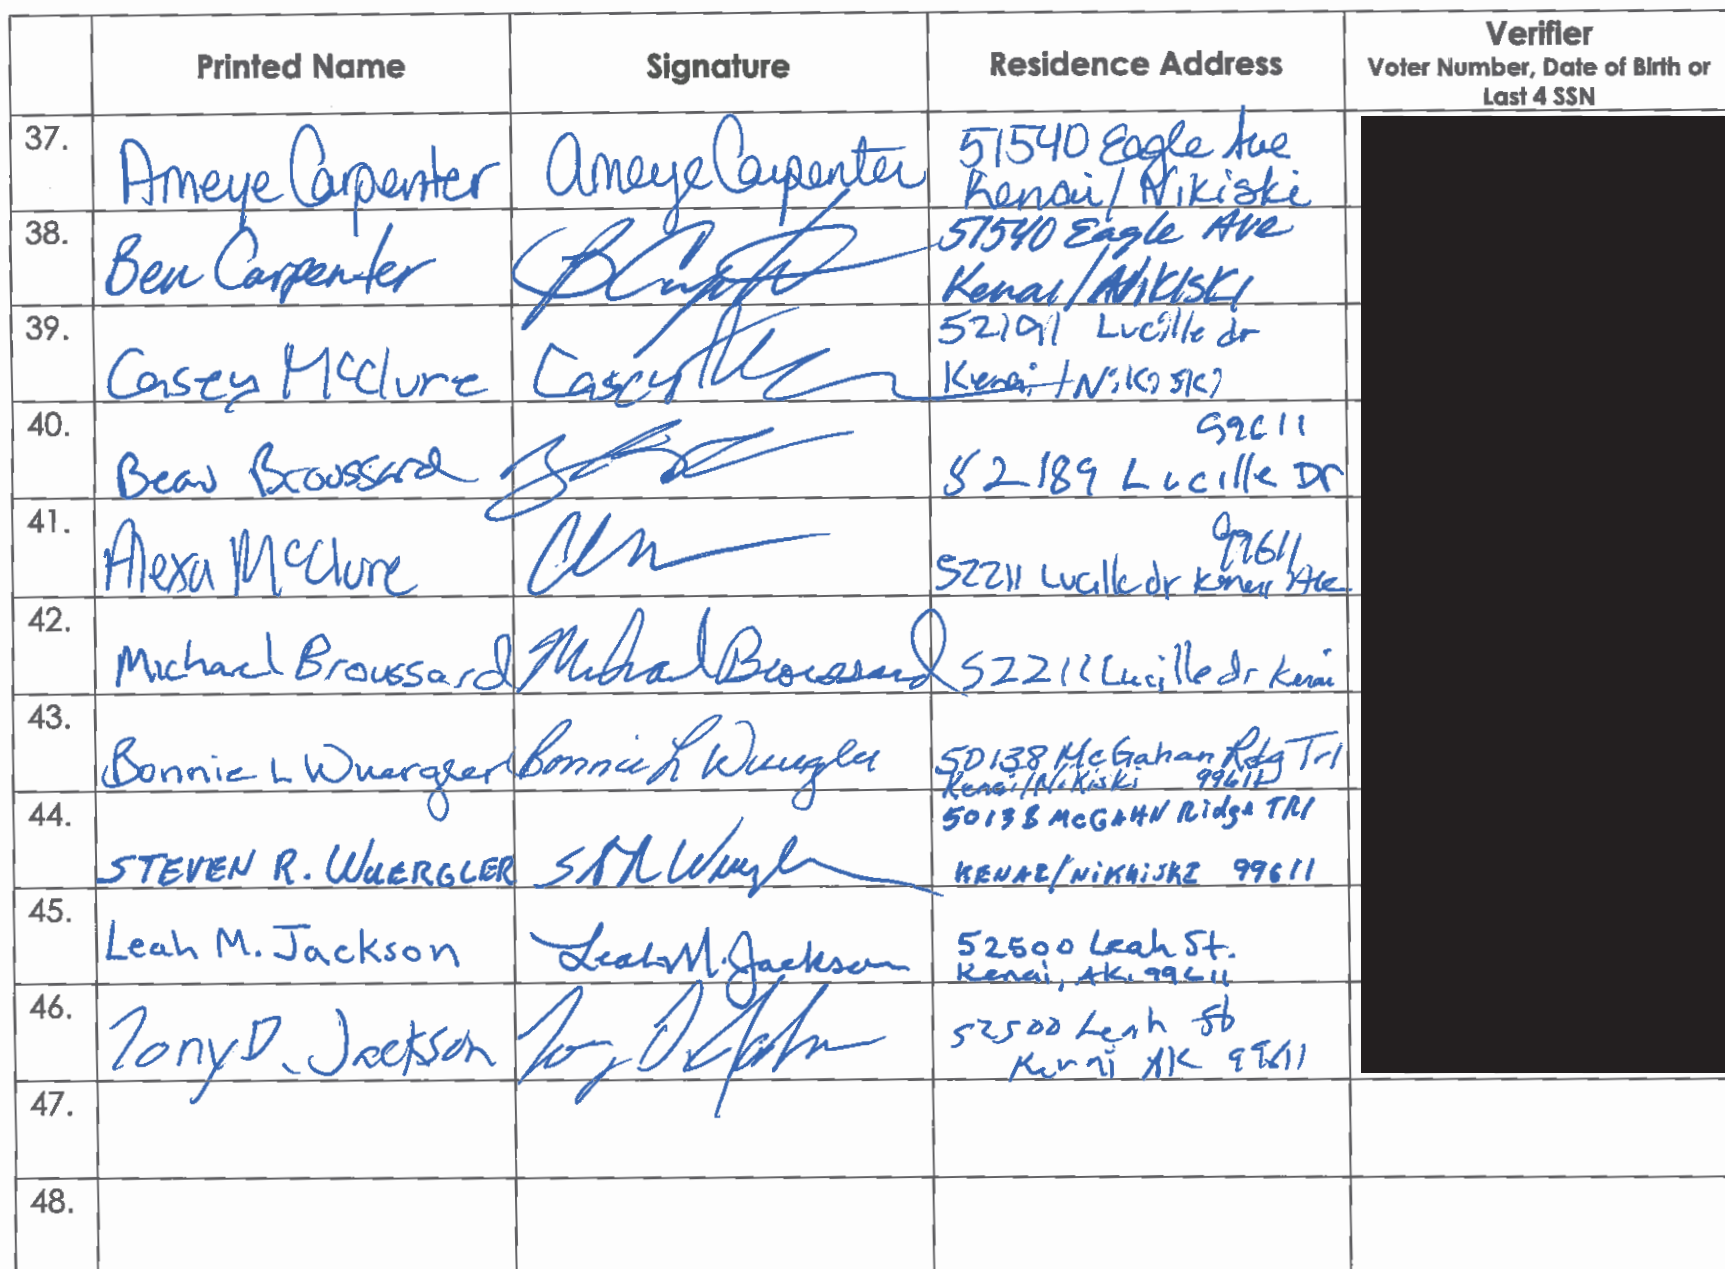 Printed Name Signature Residence Address Verifier
Voter Number, Date of Birth or
Last 4 SSN
37. Ameye Carpenter Ameye Carpenter 51540 Eagle Ave
Kenai/Nikiski
38. Ben Carpenter 51540 Eagle Ave
Kenai/Nikiski
39. Casey McClure Casey 52191 Lucille dr
Kenai/Nikiski
40. Beau Broussard 99611
52189 Lucille Dr
41. Alexa McClure 99611
52211 Lucille dr Kenai
42. Michael Broussard Michael Broussard 52211 Lucille dr Kenai
43. Bonnie L Wuergler Bonnie L Wuergler 50138 McGahan Rdg Trl
Kenai/Nikiski 99611
44. STEVEN R. WUERGLER S R Wuergler 50138 McGAHN Ridge TRl
KENAI/NiKHiSKI 99611
45. Leah M. Jackson Leah M. Jackson 52500 Leah St.
Kenai, AK. 99611
46. Tony D. Jackson Tony D Jackson 52500 Leah St
Kenai AK 99611
47.
48.